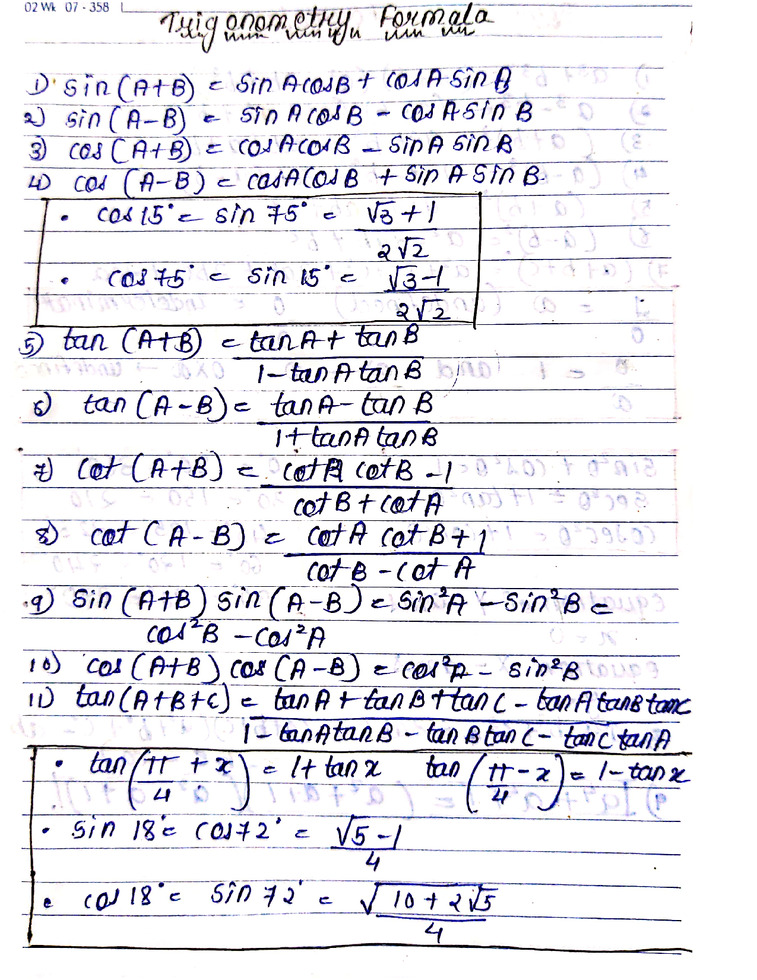 02 Wk 07 - 358
Trigonometry Formala
1) sin (A+B) = sin A cosB + cosA sin B
2) sin (A-B) = sin A cosB - cosA sin B
3) cos (A+B) = cosA cosB - sin A sin B
4) cos (A-B) = cosA cosB + sin A sin B.
• cos 15° = sin 75° = √3 + 1 / 2√2
• cos 75° = sin 15° = √3 - 1 / 2√2
5) tan (A+B) = tan A + tan B / 1 - tan A tan B
6) tan (A-B) = tan A - tan B / 1 + tan A tan B
7) cot (A+B) = cot A cot B - 1 / cot B + cot A
8) cot (A-B) = cot A cot B + 1 / cot B - cot A
9) sin (A+B) sin (A-B) = sin²A - sin²B =
cos²B - cos²A
10) cos (A+B) cos (A-B) = cos²A - sin²B
11) tan (A+B+C) = tan A + tan B + tan C - tan A tan B tan C / 1 - tan A tan B - tan B tan C - tan C tan A
• tan (π/4 + x) = 1 + tan x tan (π/4 - x) = 1 - tan x
• sin 18° = cos 72° = √5 - 1 / 4
• cos 18° = sin 72° = √10 + 2√5 / 4